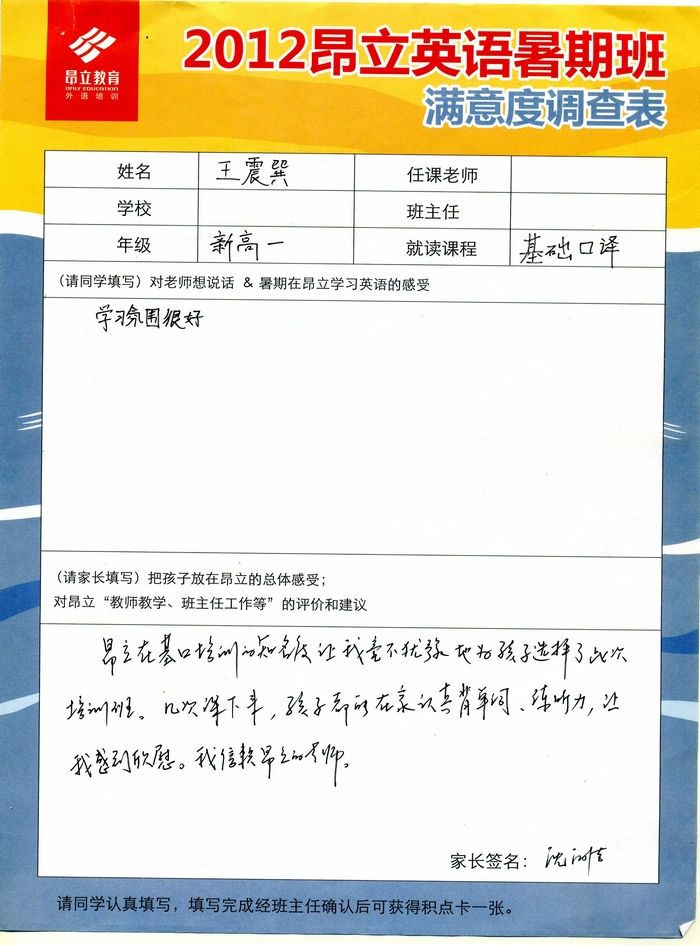 昂立教育
ONLY EDUCATION
外语培训
2012昂立英语暑期班
满意度调查表
姓名 王震巽 任课老师
学校 班主任
年级 新高一 就读课程 基础口译
（请同学填写）对老师想说话 & 暑期在昂立学习英语的感受
学习氛围很好
（请家长填写）把孩子放在昂立的总体感受；
对昂立“教师教学、班主任工作等”的评价和建议
昂立在基口培训的知名度让我毫不犹豫地为孩子选择了此次
培训班。几次课下来，孩子都能在家认真背单词、练听力，让
我感到欣慰。我信赖昂立的老师。
家长签名：沈
请同学认真填写，填写完成经班主任确认后可获得积点卡一张。